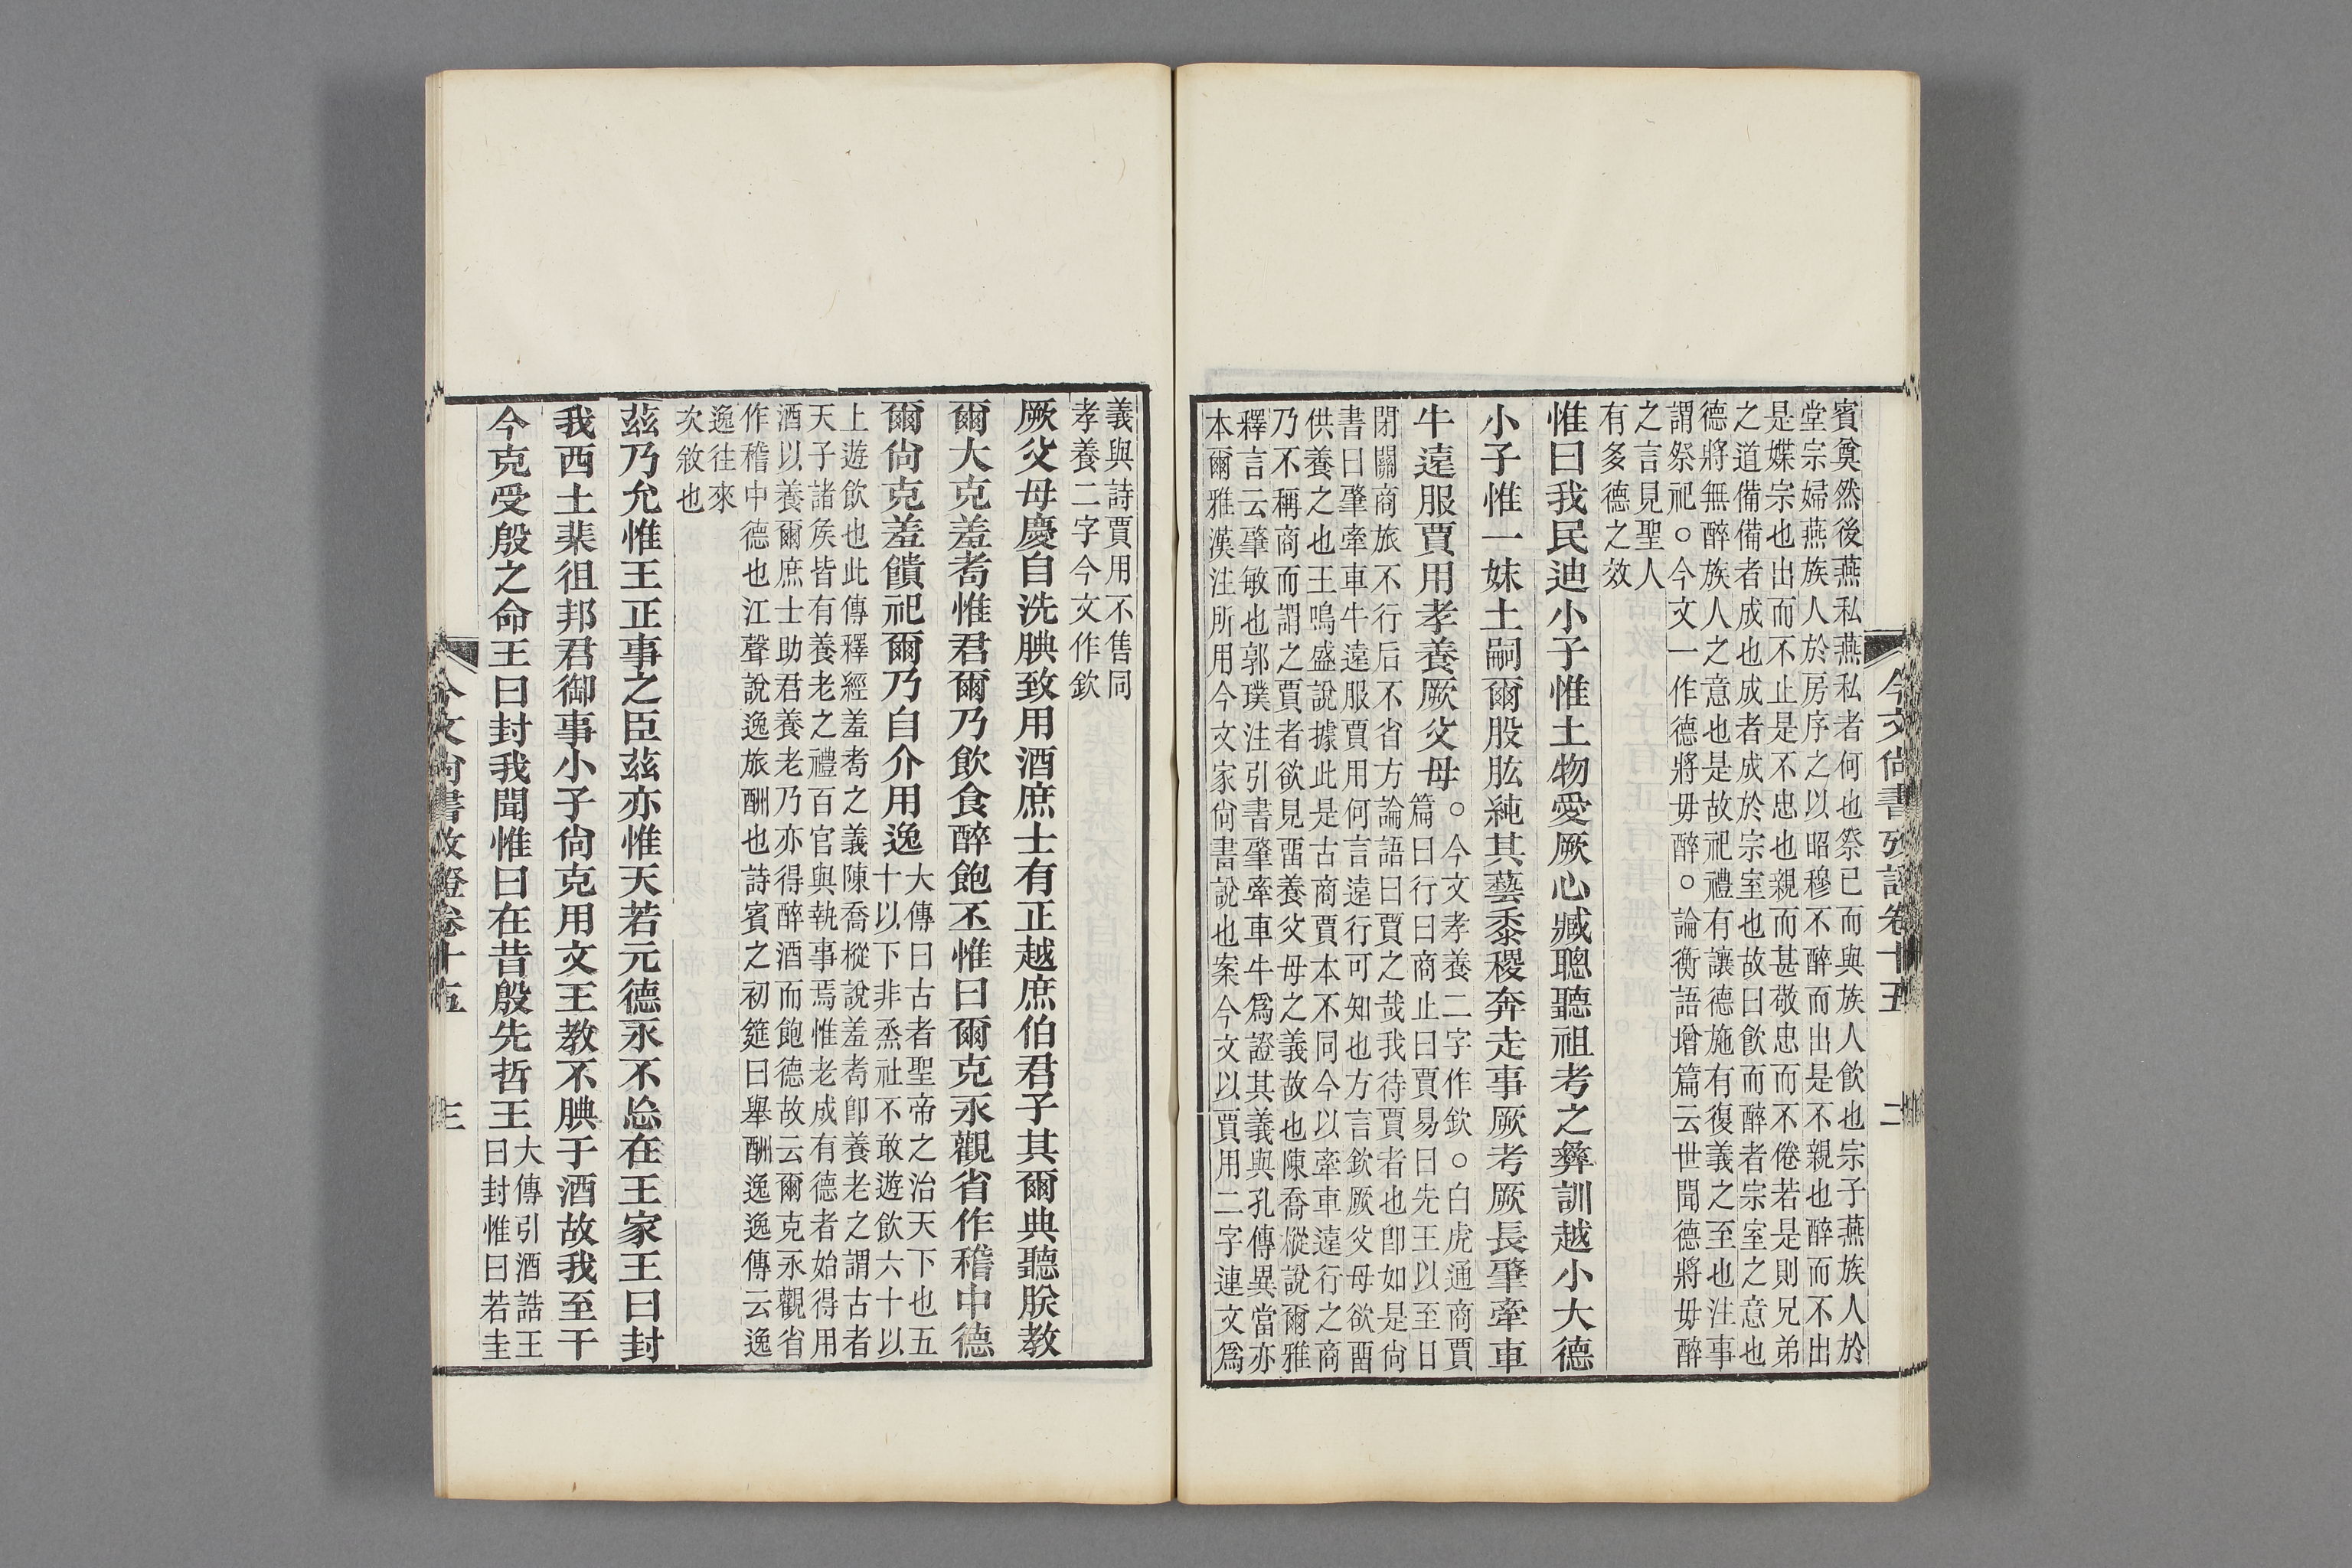 賓奠然後燕私燕私者何也祭已而與族人飲也宗子燕族人於
堂宗婦燕族人於房序之以昭穆不醉而出是不親也醉而不出
是媟宗也出而不止是不忠也親而甚敬忠而不倦若是則兄弟
之道備備者成也成者成於宗室也故曰飲而醉者宗室之意也
德將無醉族人之意也是故祀禮有讓德施有復義之至也注事
謂祭祀○今文一作德將毋醉○論衡語增篇云世聞德將毋醉
之言見聖人
有多德之效
惟曰我民迪小子惟土物愛厥心臧聰聽祖考之彝訓越小大德
小子惟一妹土嗣爾股肱純其藝黍稷奔走事厥考厥長肇牽車
牛遠服賈用孝養厥父母
○今文孝養二字作欽○白虎通商賈
篇曰行曰商止曰賈易曰先王以至日
閉關商旅不行后不省方論語曰賈之哉我待賈者也卽如是尙
書曰肇牽車牛遠服賈用何言遠行可知也方言欽厥父母欲畱
供養之也王鳴盛說據此是古商賈本不同今以牽車遠行之商
乃不稱商而謂之賈者欲見畱養父母之義故也陳喬樅說爾雅
釋言云肇敏也郭璞注引書肇牽車牛爲證其義與孔傳異當亦
本爾雅漢注所用今文家尙書說也案今文以賈用二字連文爲
今文尙書攷證卷十五
二
義與詩賈用不售同
孝養二字今文作欽
厥父母慶自洗腆致用酒庶士有正越庶伯君子其爾典聽朕教
爾大克羞耇惟君爾乃飲食醉飽丕惟曰爾克永觀省作稽中德
爾尙克羞饋祀爾乃自介用逸
大傳曰古者聖帝之治天下也五
十以下非烝社不敢遊飲六十以
上遊飲也此傳釋經羞耇之義陳喬樅說羞耇卽養老之謂古者
天子諸矦皆有養老之禮百官與執事焉惟老成有德者始得用
酒以養爾庶士助君養老乃亦得醉酒而飽德故云爾克永觀省
作稽中德也江聲說逸旅酬也詩賓之初筵曰舉酬逸逸傳云逸
逸往來
次敘也
茲乃允惟王正事之臣茲亦惟天若元德永不忘在王家王曰封
我西土棐徂邦君御事小子尙克用文王教不腆于酒故我至于
今克受殷之命王曰封我聞惟曰在昔殷先哲王
大傳引酒誥王
曰封惟曰若圭
今文尙書攷證卷十五
三